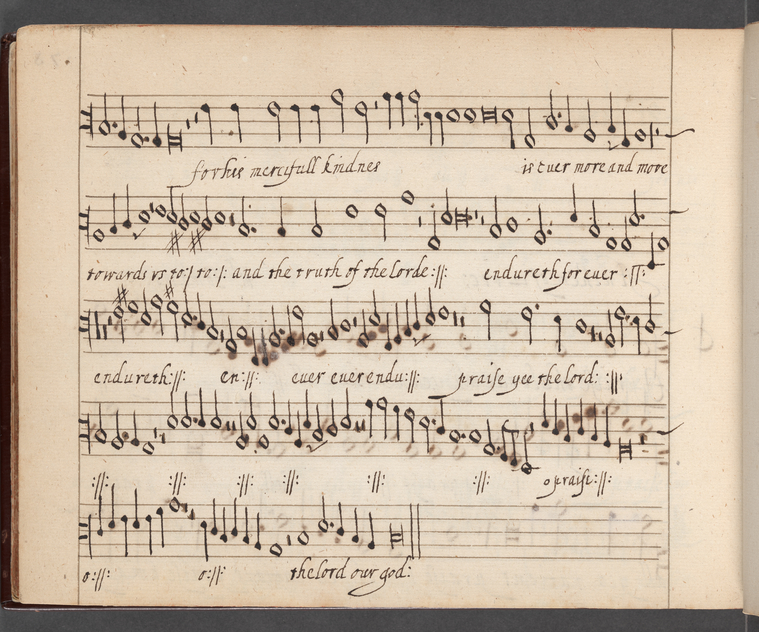 for his mercifull kindnes is euer more and more
towards vs to:/ to:/: and the truth of the lorde :||: endureth for euer :||:
endureth :||: en :||: euer euer endu :||: praise yee the lord: :||:
:||: :||: :||: :||: :||: :||: o praise :||:
o :||: o :||: the lord our god: